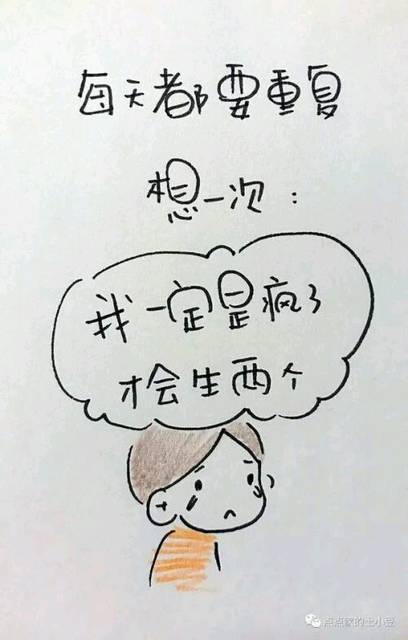 每天都要重复
想一次：
我一定是疯了
才会生两个
点点家的土小豆